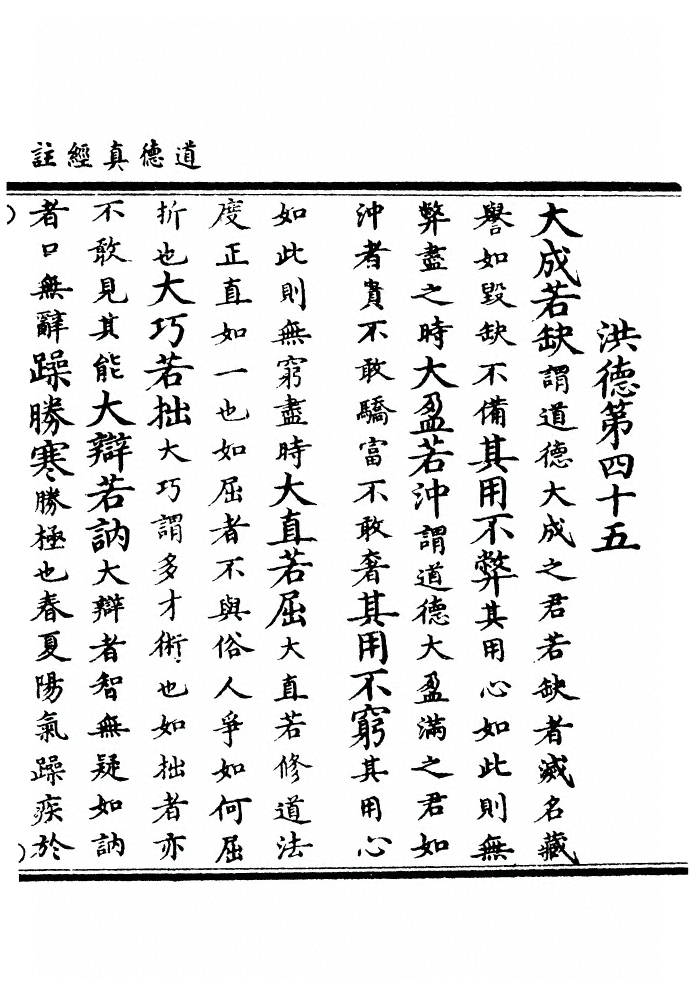 道德真經註
洪德第四十五
大成若缺謂道德大成之君若缺者滅名藏
譽如毀缺不備其用不弊其用心如此則無
弊盡之時大盈若沖謂道德大盈滿之君如
沖者貴不敢驕富不敢奢其用不窮其用心
如此則無窮盡時大直若屈大直若修道法
度正直如一也如屈者不與俗人爭如何屈
折也大巧若拙大巧謂多才術也如拙者亦
不敢見其能大辯若訥大辯者智無疑如訥
者口無辭躁勝寒勝極也春夏陽氣躁疾於